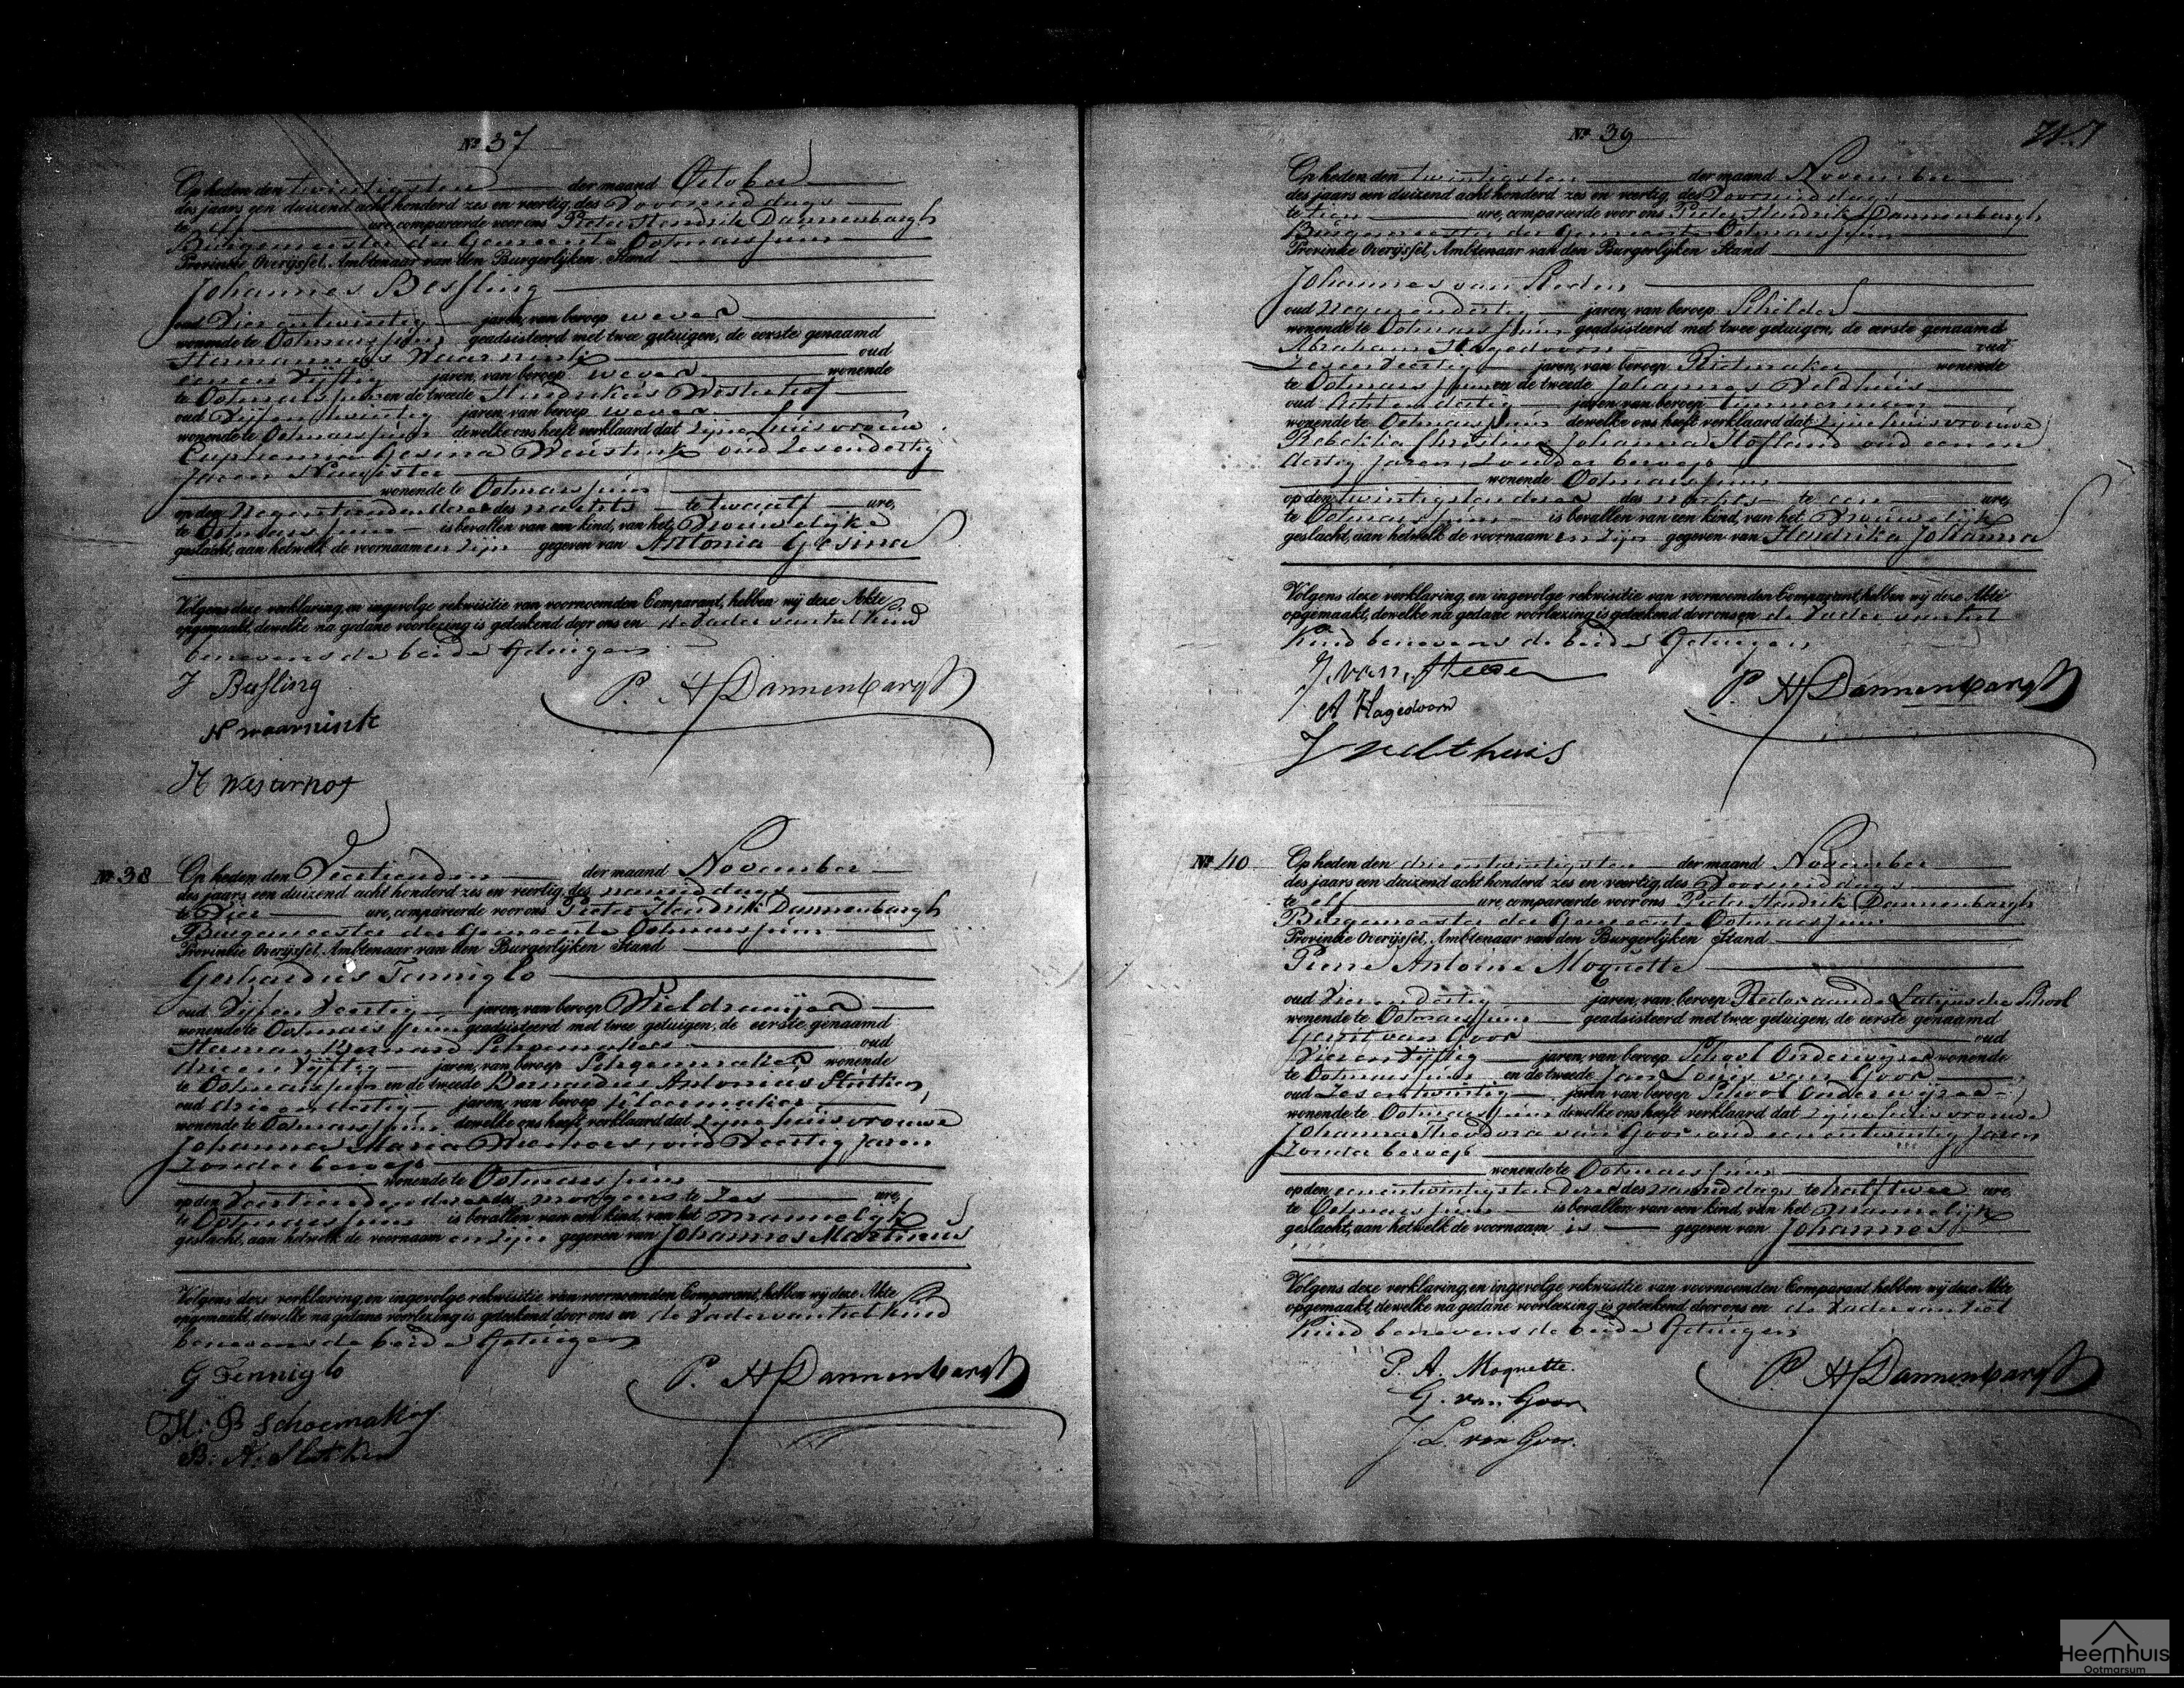 No. 37
Op heden den twintigsten der maand October
des jaars een duizend acht honderd zes en veertig, des Voormiddags
te elf ure, compareerde voor ons Pieter Hendrik Dannenbargh
Burgemeester der Gemeente Ootmarssum
Provincie Overijssel, Ambtenaar van den Burgerlijken Stand
Johannes Bessling
oud Vier en twintig jaren, van beroep wever
wonende te Ootmarssum geadsisteerd met twee getuigen, de eerste genaamd
Hermannus Waarnink oud
een en Vijftig jaren, van beroep wever wonende
te Ootmarssum en de tweede Hendrikus Westerhof
oud Vijf en twintig jaren, van beroep wever
wonende te Ootmarssum dewelke ons heeft verklaard dat zijne huisvrouw
Euphemia Gesina Weustink oud zesendertig
Jaren Naaister
wonende te Ootmarssum
op den Negentienden dezer des nachts te twaalf ure,
te Ootmarssum is bevallen van een kind, van het Vrouwelijke
geslacht, aan hetwelk de voornaamen zijn gegeven van Antonia Gesina
Volgens deze verklaring, en ingevolge rekwisitie van voornoemden Comparant, hebben wij deze Akte
opgemaakt, dewelke na gedane voorlezing is geteekend door ons en de Vader van het kind
benevens de beide Getuigen
J Besling
H waarnink
P. H Dannenbargh
H Westerhof
No. 38
Op heden den Veertienden der maand November
des jaars een duizend acht honderd zes en veertig, des namiddags
te Vier ure, compareerde voor ons Pieter Hendrik Dannenbargh
Burgemeester der Gemeente Ootmarssum
Provincie Overijssel, Ambtenaar van den Burgerlijken Stand
Gerhardus Fenniglo
oud Vijf en Veertig jaren, van beroep Wieldraaijer
wonende te Ootmarssum geadsisteerd met twee getuigen, de eerste genaamd
Herman Bernard Schoemaker oud
drie en Vijftig jaren, van beroep wonende
te Ootmarssum en de tweede Bernardus Antonius
oud drie en dertig jaren, van beroep
wonende te Ootmarssum dewelke ons heeft verklaard dat zijne huisvrouwe
Johanna Maria oud Veertig Jaren
Zonder beroep
wonende te Ootmarssum
op den Veertienden dezer des morgens te Zes ure,
te Ootmarssum is bevallen van een kind, van het mannelijk
geslacht, aan hetwelk de voornaam en zijn gegeven van Johannes Martinus
Volgens deze verklaring, en ingevolge rekwisitie van voornoemden Comparant, hebben wij deze Akte
opgemaakt, dewelke na gedane voorlezing is geteekend door ons en de Vader van het kind
benevens de beide Getuigen
G Fenniglo
P. H Dannenbargh
H: B Schoemaker
B: A:
No. 39
Op heden den twintigsten der maand November
des jaars een duizend acht honderd zes en veertig, des Voormiddags
te tien ure, compareerde voor ons Pieter Hendrik Dannenbargh
Burgemeester der Gemeente Ootmarssum
Provincie Overijssel, Ambtenaar van den Burgerlijken Stand
Johannes van Steden
oud Negenendertig jaren, van beroep Schilder
wonende te Ootmarssum geadsisteerd met twee getuigen, de eerste genaamd
Abraham Hagedoorn oud
Zeven Veertig jaren, van beroep Rietmaker wonende
te Ootmarssum en de tweede Johannes Veldhuis
oud Acht en dertig jaren, van beroep timmerman
wonende te Ootmarssum dewelke ons heeft verklaard dat zijne huisvrouwe
Rebekka Christina Johanna Hofland oud een en
dertig Jaren, zonder beroep
wonende Ootmarssum
op den twintigsten dezer des nachts te een ure,
te Ootmarssum is bevallen van een kind, van het Vrouwelijk
geslacht, aan hetwelk de voornaam en zijn gegeven van Hendrika Johanna
Volgens deze verklaring, en ingevolge rekwisitie van voornoemden Comparant, hebben wij deze Akte
opgemaakt, dewelke na gedane voorlezing is geteekend door ons en de Vader van het
Kind benevens de beide Getuigen
J van Steden
P. H Dannenbargh
A Hagedoorn
J veldthuis
No. 40
Op heden den drie en twintigsten der maand November
des jaars een duizend acht honderd zes en veertig, des Voormiddags
te elf ure, compareerde voor ons Pieter Hendrik Dannenbargh
Burgemeester der Gemeente Ootmarssum
Provincie Overijssel, Ambtenaar van den Burgerlijken Stand
Pierre Antoine Moquette
oud Vier en dertig jaren, van beroep Latijnsche School
wonende te Ootmarssum geadsisteerd met twee getuigen, de eerste genaamd
Gerrit van Goor oud
Vier en Vijftig jaren, van beroep School Onderwijzer wonende
te Ootmarssum en de tweede Jan Louis van Goor
oud Zes en twintig jaren, van beroep School Onderwijzer
wonende te Ootmarssum dewelke ons heeft verklaard dat zijne huisvrouwe
Johanna Theodora van Goor oud een en twintig Jaren
Zonder beroep
wonende te Ootmarssum
op den een en twintigsten dezer des namiddags te half twee ure,
te Ootmarssum is bevallen van een kind, van het mannelijk
geslacht, aan hetwelk de voornaam is gegeven van Johannes
Volgens deze verklaring, en ingevolge rekwisitie van voornoemden Comparant, hebben wij deze Akte
opgemaakt, dewelke na gedane voorlezing is geteekend door ons en de Vader van het
Kind benevens de beide Getuigen
P. A. Moquette.
P. H Dannenbargh
G. van Goor
J. L. van Goor.
Heemhuis
Ootmarsum